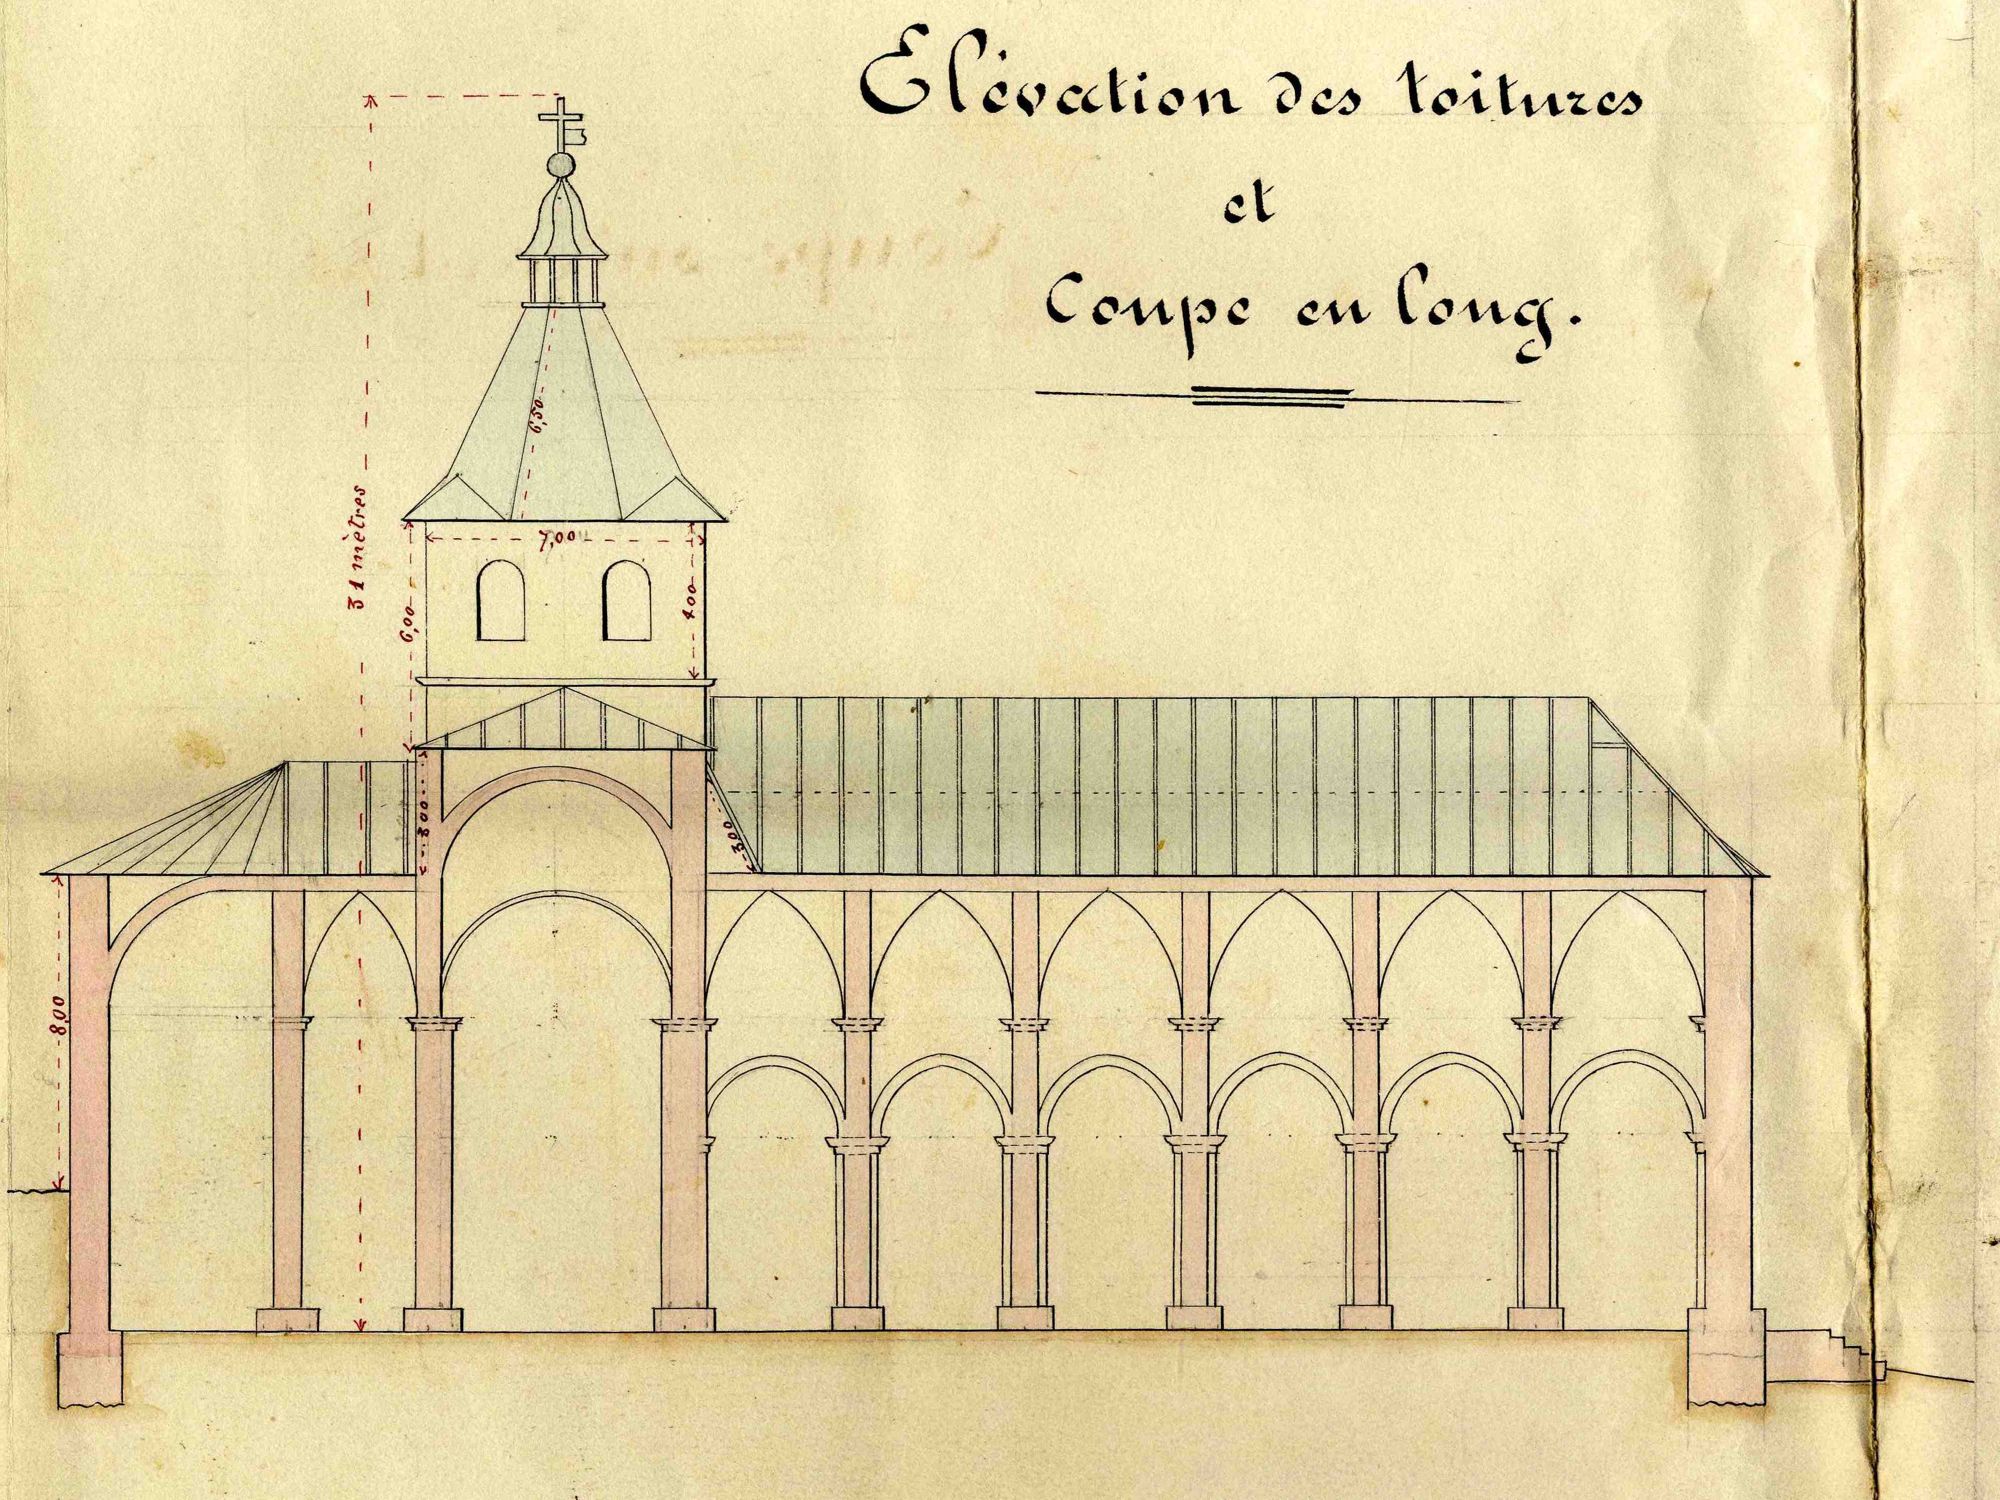 Elévation des toitures
et
Coupe en long.
31 mètres
6,50
7,00
6,00
400
300
300
8,00